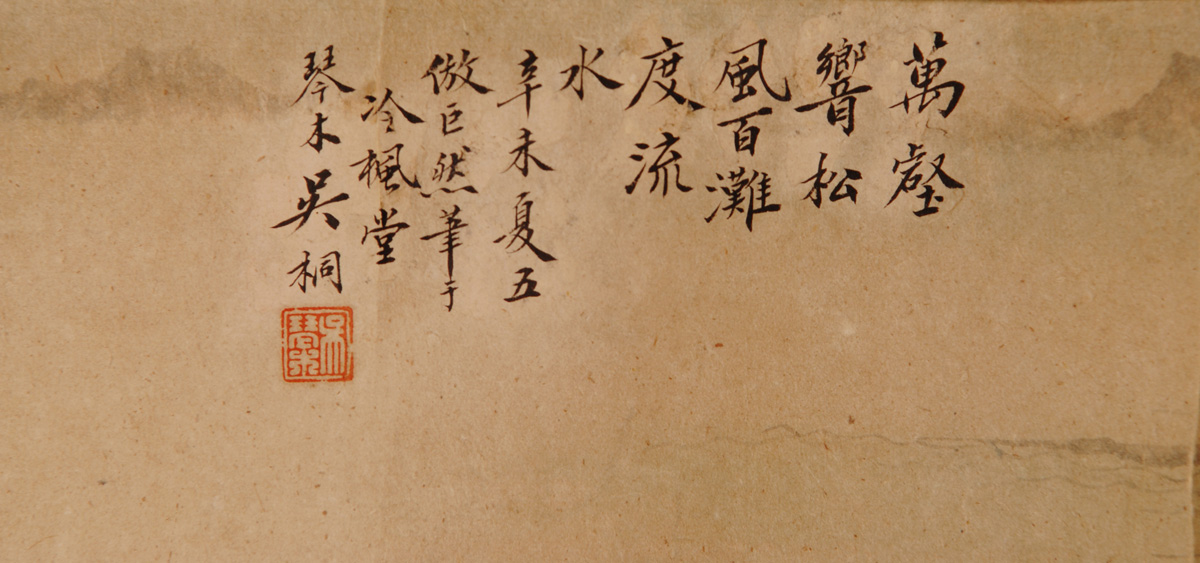 萬壑
響松
風百灘
度流
水
辛未夏五
倣巨然筆于
冷楓堂
琴木吳桐